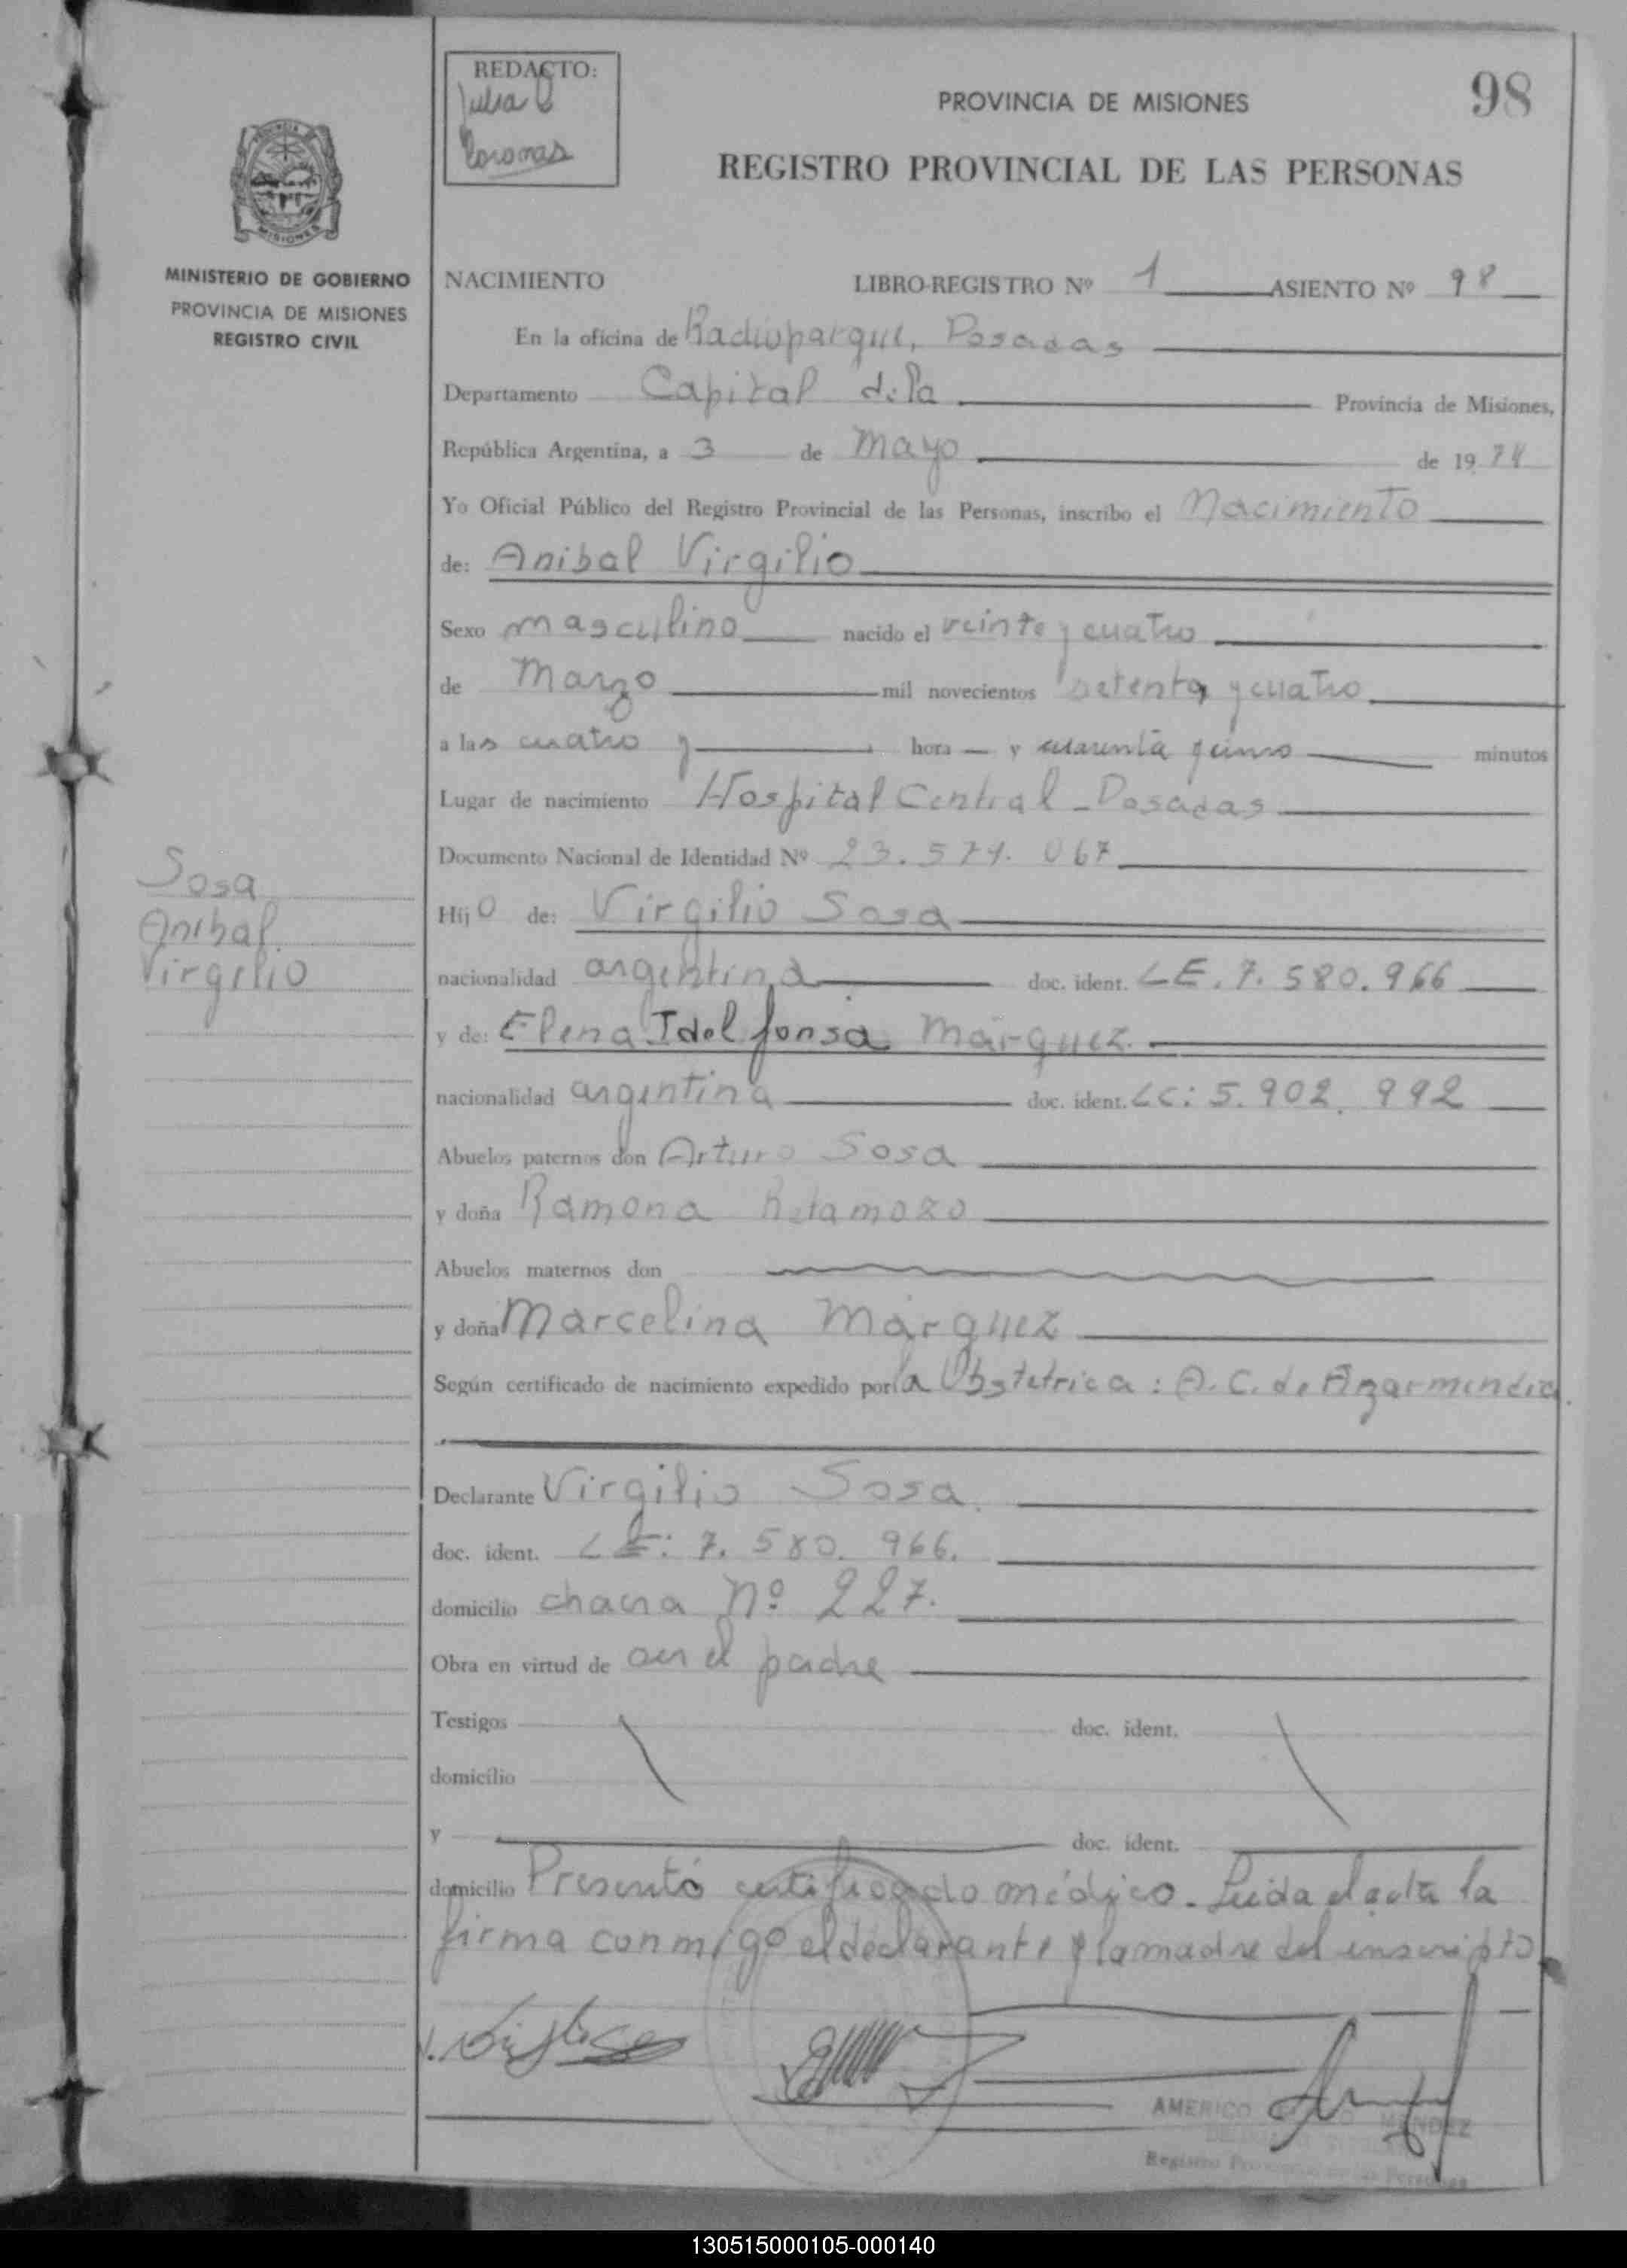 REDACTO:
Julia
98
PROVINCIA DE MISIONES
REGISTRO PROVINCIAL DE LAS PERSONAS
MISIONES
MINISTERIO DE GOBIERNO
PROVINCIA DE MISIONES
REGISTRO CIVIL
NACIMIENTO LIBRO-REGISTRO Nº 1 ASIENTO Nº 98
En la oficina de Radioparque, Posadas
Departamento Capital de la Provincia de Misiones,
República Argentina, a 3 de Mayo de 1974
Yo Oficial Público del Registro Provincial de las Personas, inscribo el Nacimiento
de: Anibal Virgilio
Sexo masculino nacido el veinte y cuatro
de Marzo mil novecientos setenta y cuatro
a las cuatro y hora y cuarenta y cinco minutos
Lugar de nacimiento Hospital Central - Posadas
Documento Nacional de Identidad Nº 23.574.067
Sosa
Anibal
Virgilio
Hijo de: Virgilio Sosa
nacionalidad argentina doc. ident. LE. 7.580.966
y de: Elena Idelfonsa Márquez.
nacionalidad argentina doc. ident. LC: 5.902.992
Abuelos paternos don Arturo Sosa
y doña Ramona Retamozo
Abuelos maternos don
y doña Marcelina Márquez
Según certificado de nacimiento expedido por la Obstetrica: A. C. de Azarmendia.
Declarante Virgilio Sosa.
doc. ident. LE: 7.580.966.
domicilio chacra Nº 227.
Obra en virtud de ser el padre
Testigos doc. ident.
domicilio
y doc. ident.
domicilio Presentó certificado médico. Leida el acta la
firma conmigo el declarante y la madre del inscripto
AMERICO MENDEZ
Registro Provincial de las Personas
130515000105-000140